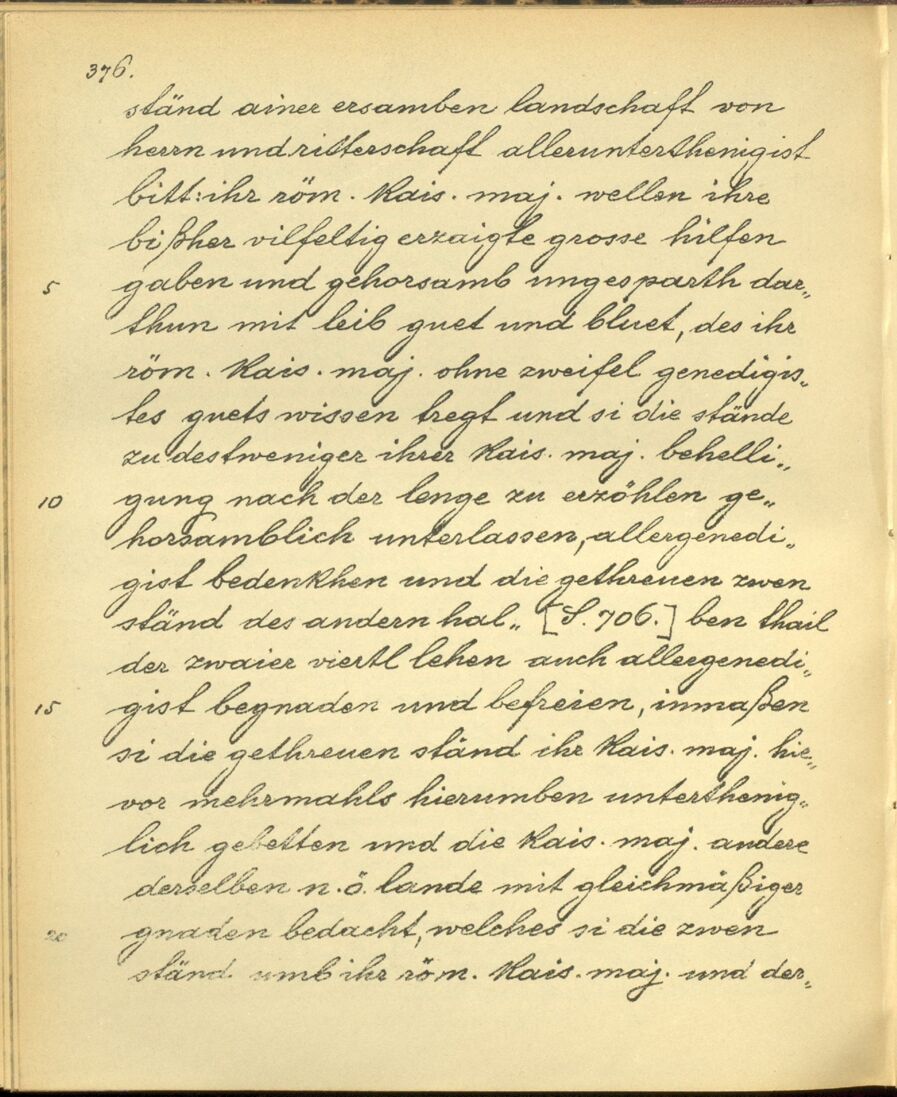 376.
ständ ainer ersamben landschaft von
herrn und ritterschaft allerunterthenigist
bitt: ihr röm. Kais. maj. wellen ihre
bißher vilfeltig erzaigte grosse hilfen
5 gaben und gehorsamb ungesparth dar„
thun mit leib guet und bluet, des ihr
röm. Kais. maj. ohne zweifel genedigis„
tes guets wissen tregt und si die stände
zu destweniger ihrer Kais. maj. behelli„
10 gung nach der lenge zu erzöhlen ge„
horsamblich unterlassen, allergenedi„
gist bedenkhen und die gethreuen zwen
ständ des andern hal„ [S. 706.] ben thail
der zwaier viertl lehen auch allergenedi„
15 gist begnaden und befreien, inmaßen
si die gethreuen ständ ihr Kais. maj. hie„
vor mehrmahls hierumben unterthenig„
lich gebetten und die Kais. maj. andere
derselben n.ö. lande mit gleichmäßiger
20 gnaden bedacht, welches si die zwen
ständ umb ihr röm. Kais. maj. und der„